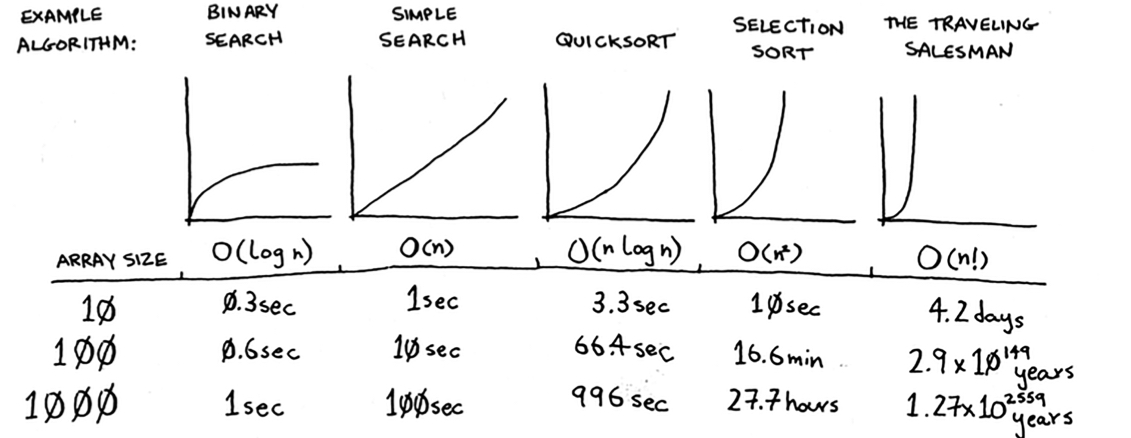 EXAMPLE ALGORITHM:
BINARY SEARCH
SIMPLE SEARCH
QUICKSORT
SELECTION SORT
THE TRAVELING SALESMAN
ARRAY SIZE O(log n) O(n) O(n log n) O(n²) O(n!)
10 0.3sec 1sec 3.3sec 10sec 4.2 days
100 0.6sec 10sec 66.4sec 16.6min 2.9 x 10¹⁴⁹ years
1000 1sec 100sec 996 sec 27.7 hours 1.27x10²⁵⁵⁹ years